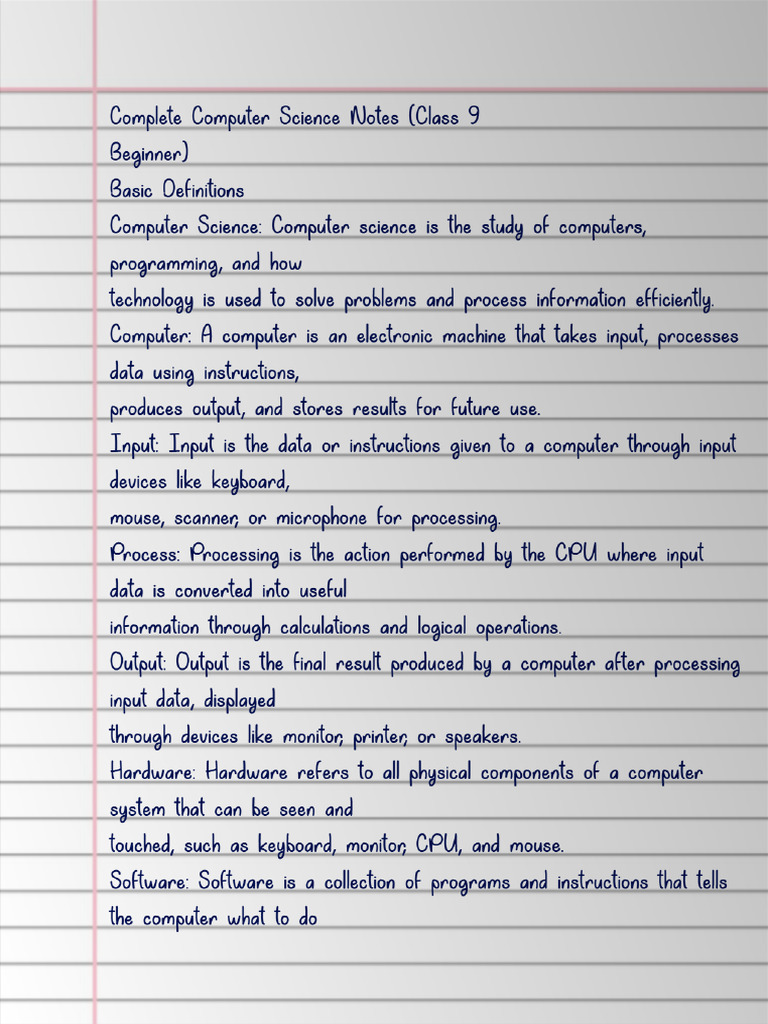 Complete Computer Science Notes (Class 9
Beginner)
Basic Definitions
Computer Science: Computer science is the study of computers,
programming, and how
technology is used to solve problems and process information efficiently.
Computer: A computer is an electronic machine that takes input, processes
data using instructions,
produces output, and stores results for future use.
Input: Input is the data or instructions given to a computer through input
devices like keyboard,
mouse, scanner, or microphone for processing.
Process: Processing is the action performed by the CPU where input
data is converted into useful
information through calculations and logical operations.
Output: Output is the final result produced by a computer after processing
input data, displayed
through devices like monitor, printer, or speakers.
Hardware: Hardware refers to all physical components of a computer
system that can be seen and
touched, such as keyboard, monitor, CPU, and mouse.
Software: Software is a collection of programs and instructions that tells
the computer what to do